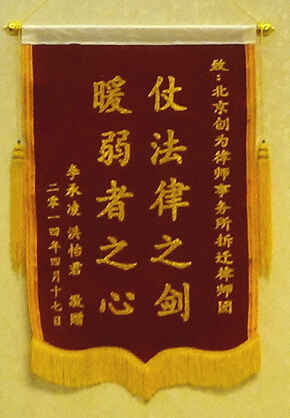 致：北京创为律师事务所拆迁律师团
仗法律之剑
暖弱者之心
李永凌 洪怡君 敬赠
二零一四年四月十七日